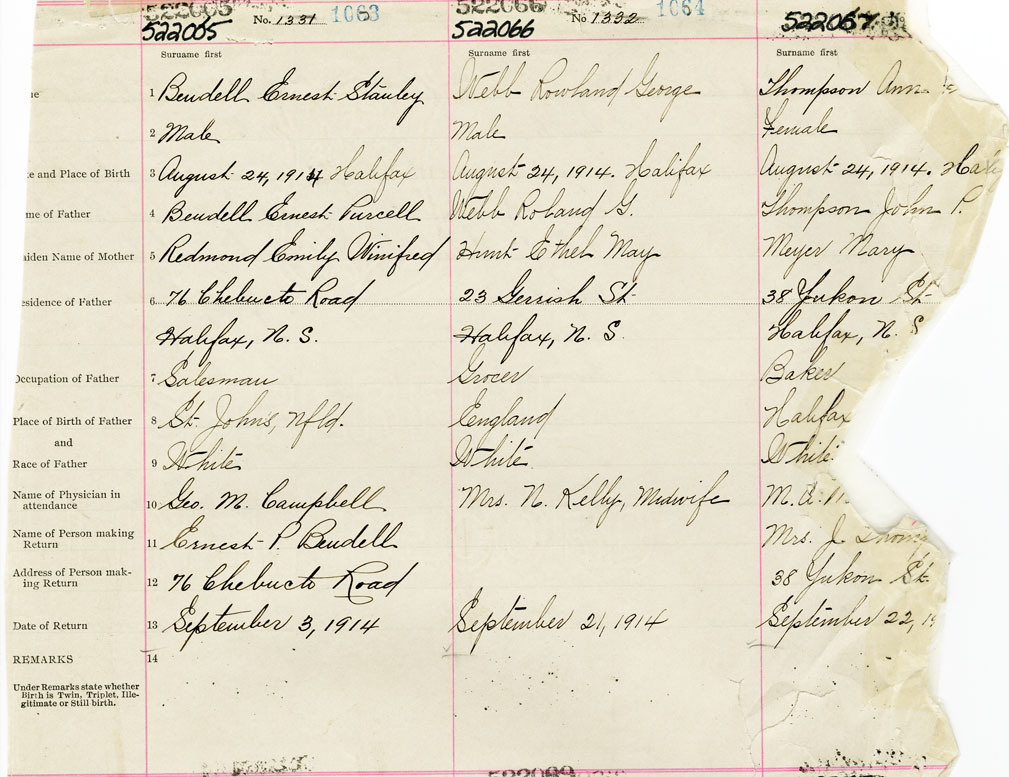 522065 No. 1331 1063 522066 No 1332 1064 522067
522065 522066
Surname first Surname first Surname first
1 Bendell Ernest Stanley Webb Rowland George Thompson Ann
2 Male Male Female
te and Place of Birth 3 August 24, 1914 Halifax August 24, 1914. Halifax August 24, 1914. Hali
me of Father 4 Bendell Ernest Purcell Webb Roland G. Thompson John P.
aiden Name of Mother 5 Redmond Emily Winifred Hunt Ethel May Meyer Mary
esidence of Father 6 76 Chebucto Road 23 Gerrish St. 38 Yukon St.
Halifax, N. S. Halifax, N. S Halifax, N. S
Occupation of Father 7 Salesman Grocer Baker
Place of Birth of Father 8 St. John's, Nfld. England Halifax
and
Race of Father 9 White White White
Name of Physician in
attendance 10 Geo. M. Campbell Mrs. N. Kelly, Midwife M. A.
Name of Person making
Return 11 Ernest P. Bendell Mrs. J. Thomp
Address of Person mak-
ing Return 12 76 Chebucto Road 38 Yukon St.
Date of Return 13 September 3, 1914 September 21, 1914 September 22, 19
REMARKS 14
Under Remarks state whether
Birth is Twin, Triplet, Ille-
gitimate or Still birth.